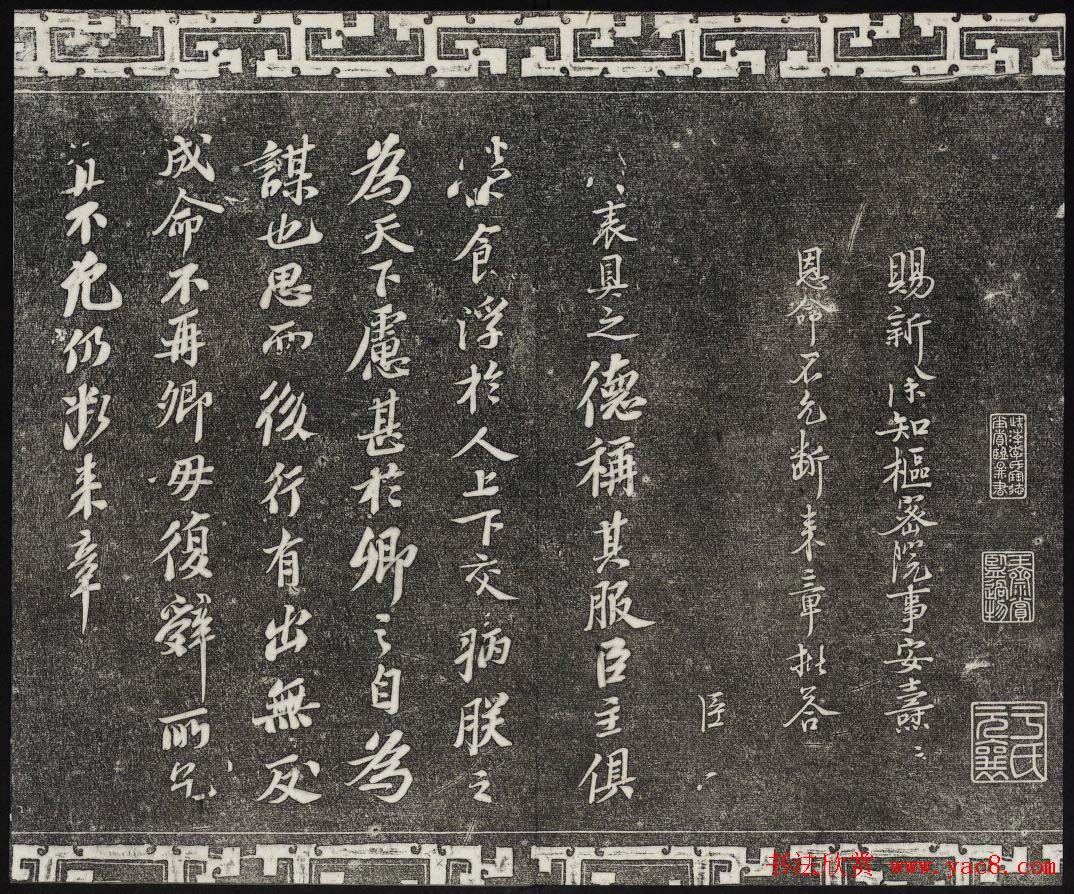 賜新除知樞密院事安燾
恩命不允断来章批答
臣
表具之德稱其服臣主俱
榮食浮於人上下交病朕之
為天下慮甚於卿之自為
謀也思而後行有出無反
成命不再卿毋復辭所乞
宜不允仍断来章
书法欣赏 www.yac8.com